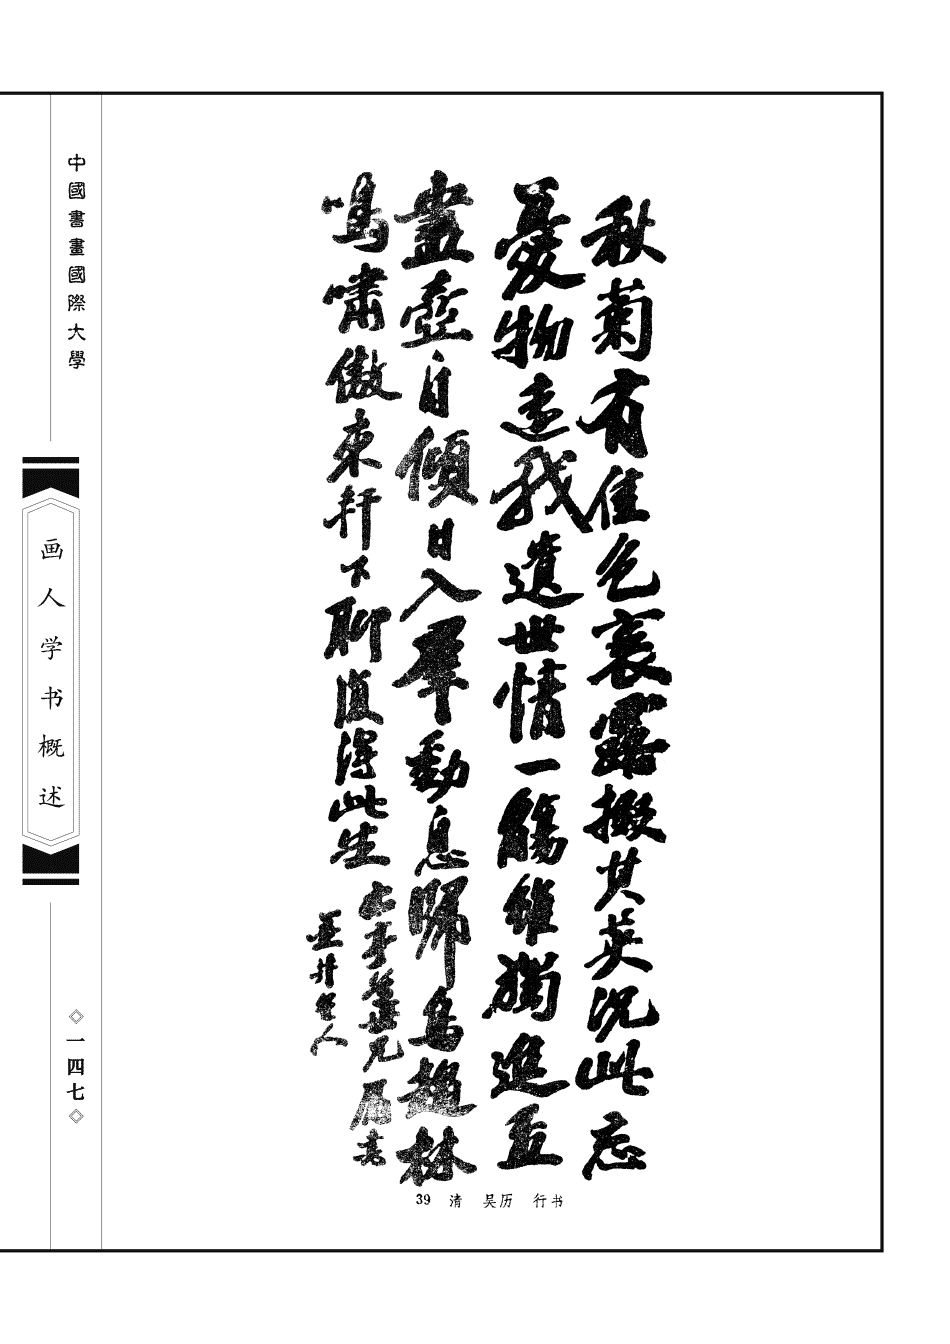 秋菊有佳色裛露掇其英汎此忘
憂物遠我遺世情一觴雖獨進盃
盡壺自傾日入羣動息歸鳥趨林
鳴嘯傲東軒下聊復得此生
世兄属書
墨井道人
39 清 吴历 行书
中國書畫國際大學
画人学书概述
◇一四七◇